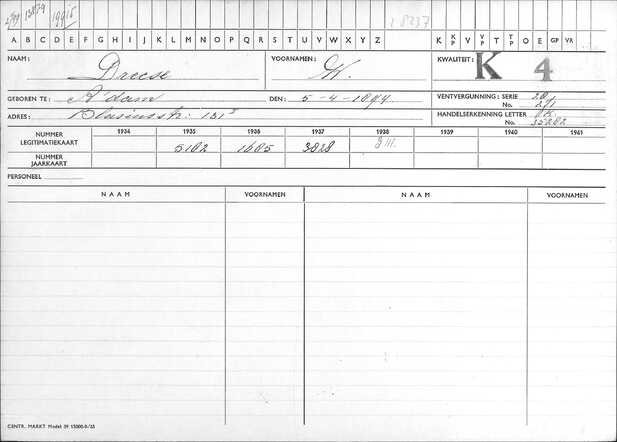 13879 19915 18237
A B C D E F G H I J K L M N O P Q R S T U V W X Y Z K K P V V P T T P O E GP VR
NAAM: Dreese VOORNAMEN: KWALITEIT: K 4
GEBOREN TE: A'dam DEN: 5-4-1894. VENTVERGUNNING: SERIE 20
No. 271
ADRES: Blasiusstr: 131 HANDELSERKENNING LETTER
No. 35202
NUMMER LEGITIMATIEKAART 1934 1935 1936 1937 1938 1939 1940 1941
5102 1605 3828
NUMMER JAARKAART
PERSONEEL
NAAM VOORNAMEN NAAM VOORNAMEN
CENTR. MARKT Model 39 15000-9/35